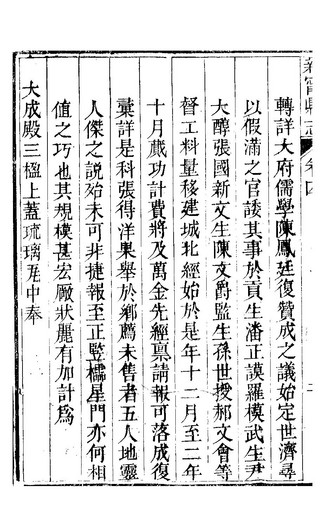 新寧縣志 卷四
轉詳大府儒學陳鳳廷復贊成之議始定世濟尋
以假滿之官諉其事於貢生潘正謨羅模武生尹
大醇張國新文生陳文爵監生徐世授郝文會等
督工料量移建城北經始於是年十二月至二年
十月蕆功計費將及萬金先經稟請報可落成復
彙詳是科張得洋果舉於鄉薦未售者五人地靈
人傑之說殆未可非捷報至正竪櫺星門亦何相
値之巧也其規模甚宏厰狀麗有加計爲
大成殿三楹上蓋琉璃瓦中奉